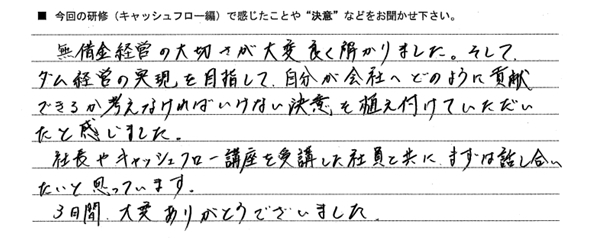 ■ 今回の研修（キャッシュフロー編）で感じたことや“決意”などをお聞かせ下さい。
無借金経営の大切さが大変良く解かりました。そして、
ダム経営の実現を目指して、自分が会社へどのように貢献
できるか考えなければいけない決意を植え付けていただい
たと感じました。
社長やキャッシュフロー講座を受講した社員と共に、まずは話し合い
たいと思っています。
3日間、大変ありがとうございました。